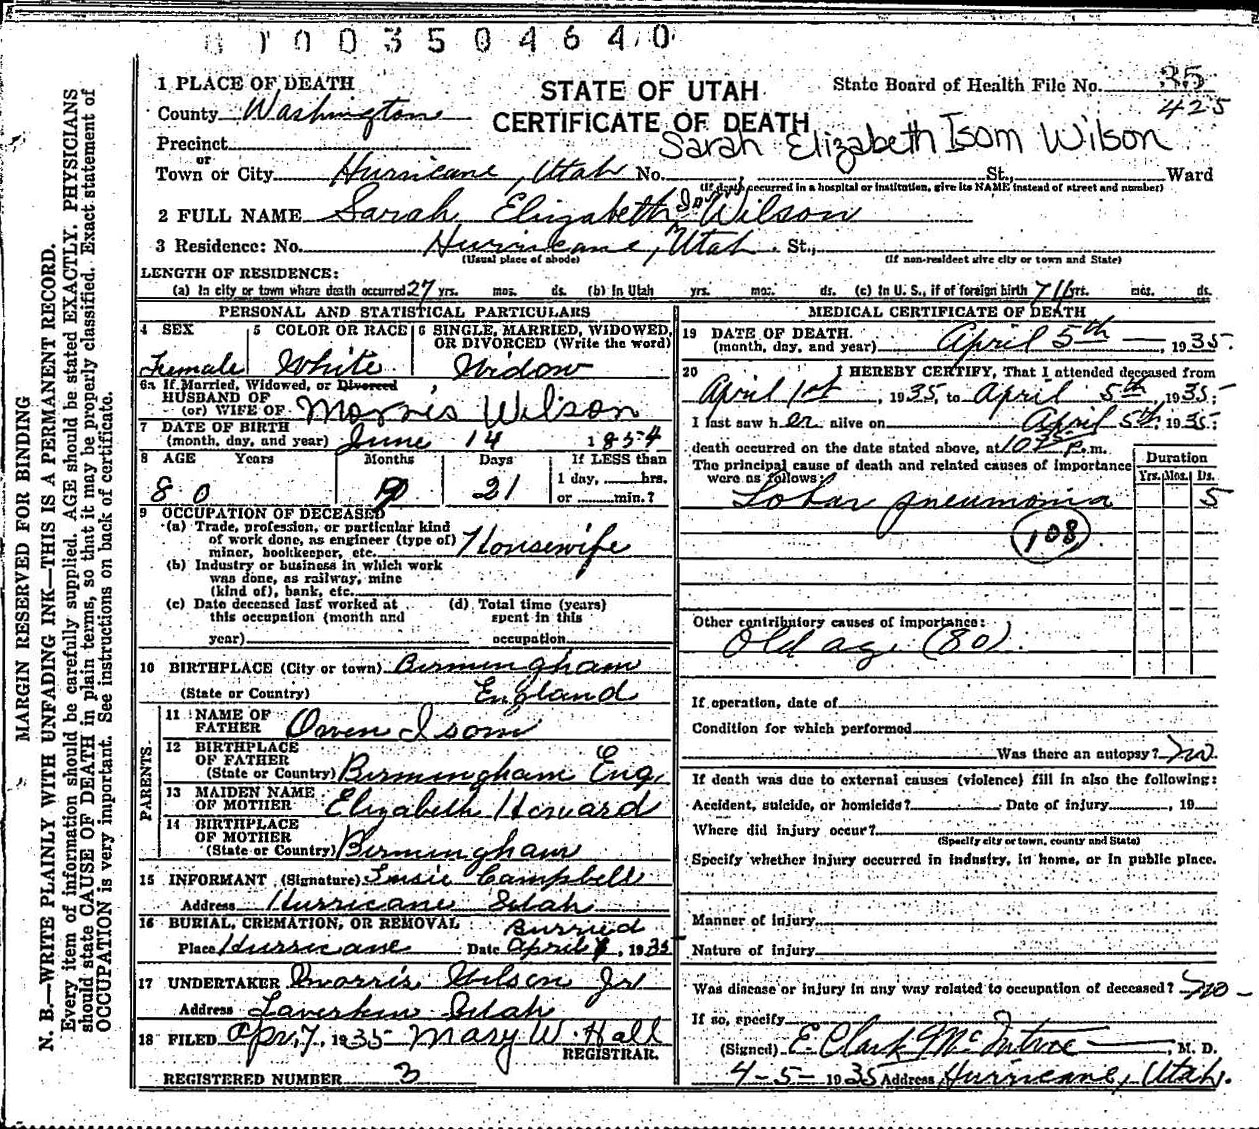 8 1 0 0 3 5 0 4 6 4 0
STATE OF UTAH
CERTIFICATE OF DEATH
State Board of Health File No. 35
425
Sarah Elizabeth Isom Wilson
1 PLACE OF DEATH
County Washington
Precinct
or
Town or City Hurricane, Utah No. St., Ward
(If death occurred in a hospital or institution, give its NAME instead of street and number)
2 FULL NAME Sarah Elizabeth Isom Wilson
3 Residence: No. Hurricane, Utah. St.,
(Usual place of abode) (If non-resident give city or town and State)
LENGTH OF RESIDENCE:
(a) In city or town where death occurred 27 yrs. mos. ds. (b) In Utah yrs. mos. ds. (c) In U. S., if of foreign birth yrs. mos. ds.
PERSONAL AND STATISTICAL PARTICULARS
4 SEX
Female
5 COLOR OR RACE
White
6 SINGLE, MARRIED, WIDOWED,
OR DIVORCED (Write the word)
Widow
6a If Married, Widowed, or Divorced
HUSBAND OF
(or) WIFE OF Morris Wilson
7 DATE OF BIRTH
(month, day, and year) June 14 1854
8 AGE Years Months Days If LESS than
80 21 1 day, hrs.
or min.?
9 OCCUPATION OF DECEASED
(a) Trade, profession, or particular kind
of work done, as engineer (type of)
miner, bookkeeper, etc. Housewife
(b) Industry or business in which work
was done, as railway, mine
(kind of), bank, etc.
(c) Date deceased last worked at
this occupation (month and
year)
(d) Total time (years)
spent in this
occupation
10 BIRTHPLACE (City or town) Birmingham
(State or Country) England
PARENTS
11 NAME OF
FATHER Owen Isom
12 BIRTHPLACE
OF FATHER
(State or Country) Birmingham Eng.
13 MAIDEN NAME
OF MOTHER Elizabeth Howard
14 BIRTHPLACE
OF MOTHER
(State or Country) Birmingham
15 INFORMANT (Signature) Susie Campbell
Address Hurricane Utah
16 BURIAL, CREMATION, OR REMOVAL Burried
Place Hurricane Date April, 1935
17 UNDERTAKER Morris Wilson Jr
Address Laverkin Utah
18 FILED Apr, 7, 1935 Mary W. Hall
REGISTRAR.
REGISTERED NUMBER 3
MEDICAL CERTIFICATE OF DEATH
19 DATE OF DEATH.
(month, day, and year) April 5th, 1935.
20 I HEREBY CERTIFY, That I attended deceased from
April 1st, 1935, to April 5th, 1935;
I last saw her alive on April 5th, 1935;
death occurred on the date stated above, at p.m.
The principal cause of death and related causes of importance
were as follows:
Duration
Yrs. Mos. Ds.
Lobar pneumonia 5
108
Other contributory causes of importance:
Old age (80).
If operation, date of
Condition for which performed
Was there an autopsy? no
If death was due to external causes (violence) fill in also the following:
Accident, suicide, or homicide? Date of injury, 19
Where did injury occur?
(Specify city or town, county and State)
Specify whether injury occurred in industry, in home, or in public place.
Manner of injury
Nature of injury
Was disease or injury in any way related to occupation of deceased? no
If so, specify
(Signed) E. Clark McIntire, M. D.
4-5-1935 Address Hurricane, Utah.
MARGIN RESERVED FOR BINDING
N. B.—WRITE PLAINLY WITH UNFADING INK—THIS IS A PERMANENT RECORD.
Every item of information should be carefully supplied. AGE should be stated EXACTLY. PHYSICIANS
should state CAUSE OF DEATH in plain terms, so that it may be properly classified. Exact statement of
OCCUPATION is very important. See instructions on back of certificate.